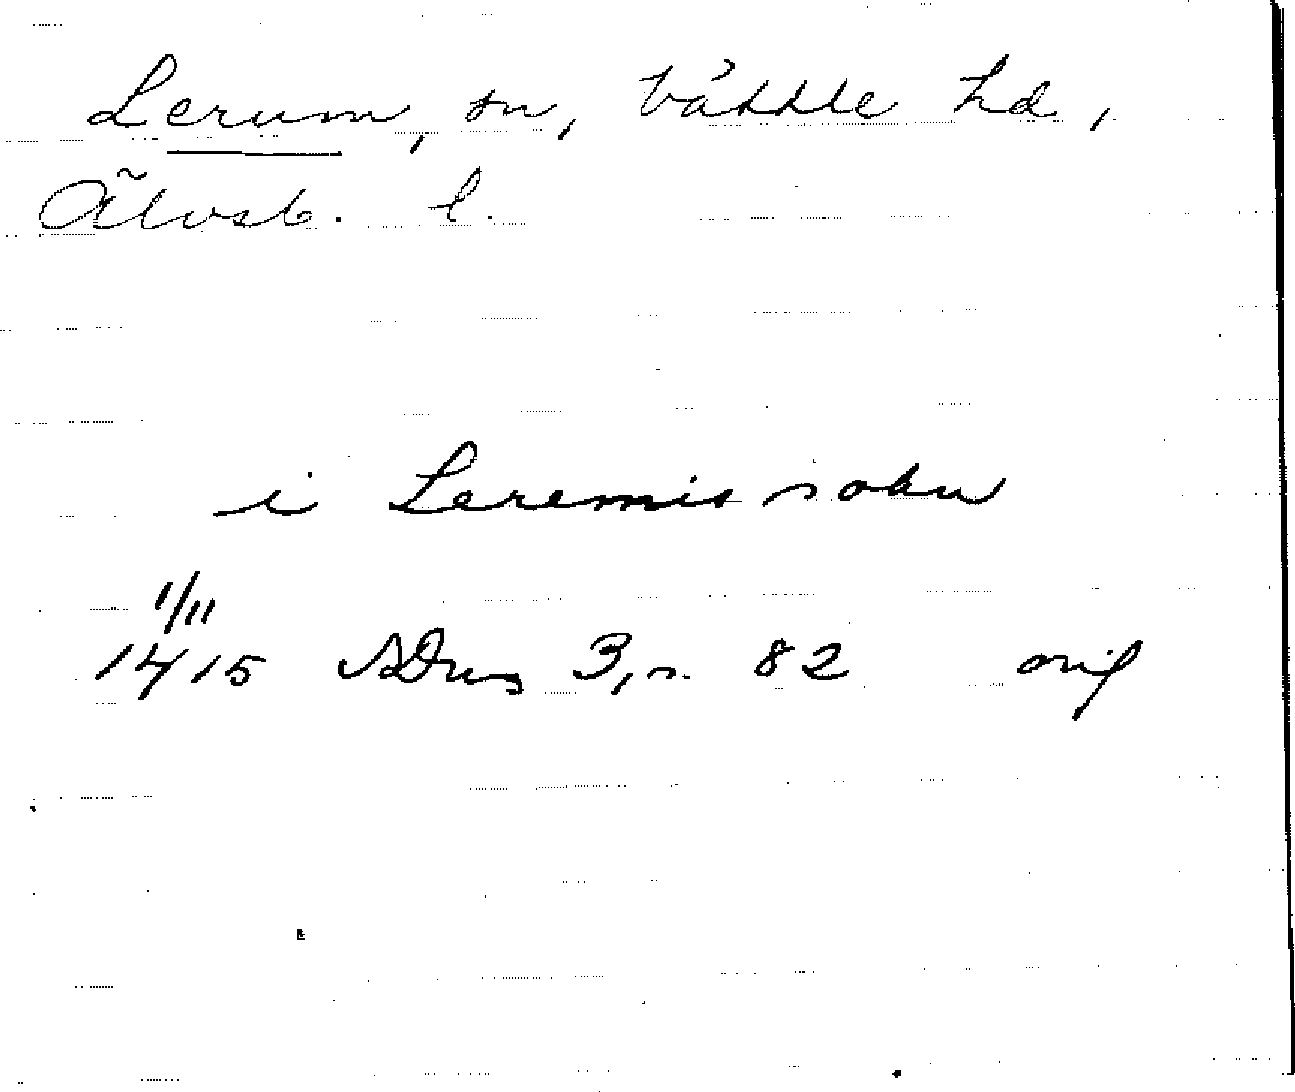 Lerum, sn, Vättle hd,
Älvsb. l.
i Leremis sokn
1/11
1415 SDns 3, s. 82 orig